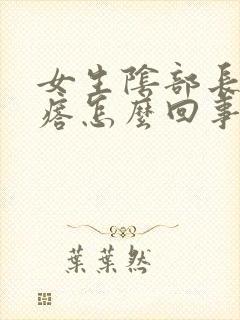 女生陰部長
痞怎麼回事
葉葉然